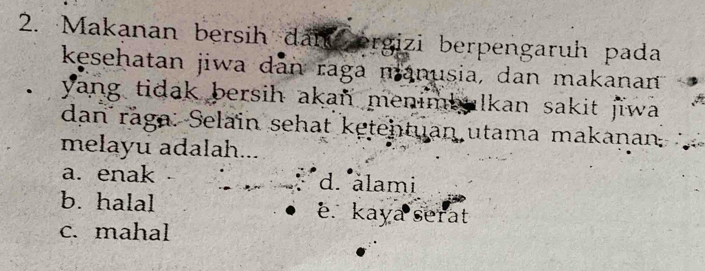 2. Makanan bersih dan bergizi berpengaruh pada
kesehatan jiwa dan raga manusia, dan makanan
yang tidak bersih akan menimbulkan sakit jiwa
dan raga. Selain sehat ketentuan utama makanan
melayu adalah...
a. enak
d. alami
b. halal
e. kaya serat
c. mahal